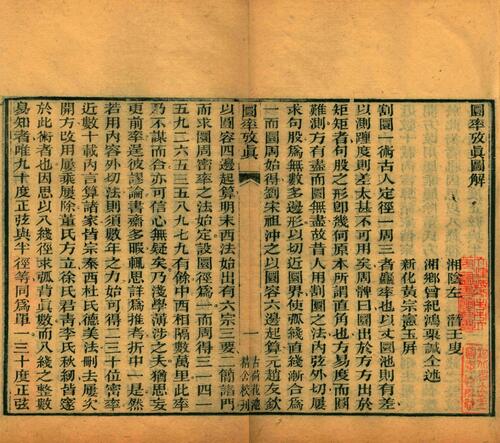 圜率攷眞圖解
湘陰左　潛壬叟
湘鄉曾紀鴻栗諴仝述
新化黃宗憲玉屏
割圜一術古人定徑一周三者麤率也以丈圜池則有差
以測躔度則差太甚不可用矣周髀曰圜出於方方出於
矩矩者句股之形卽幾何原本所謂直角也方易度而圜
難測方有盡而圜無盡故昔人用割圜之法內弦外切屢
求句股爲無數多邊形以切近圜界使弧綫直綫漸合爲
一而圜周始得劉宋祖沖之以圜容六邊起算元趙友欽
圜率攷眞
一
古荷花池
精舍校刋
以圜容四邊起算明末西法始出有六宗三要二簡諸門
而求圜周密率之法始定設圜徑爲一而周得三一四一
五九二六五三五八九七九有餘中西相隔數萬里此率
乃不謀而合亦可信心無疑矣乃淺學薄涉之夫猶思妄
更前率是彼謬論書齋多暇輒思詳爲推筭折中一是然
若用內容外切之法則須數年之力始可得二三十位密率
近數十載內言算諸家皆宗秦西杜氏德美法刪去屢次
開方改用屢乘屢除董氏方立徐氏君靑李氏秋紉皆邃
於此術者也因思以八綫徑求弧背眞數而八綫之整數
易知者唯九十度正弦與半徑等同爲單一三十度正弦